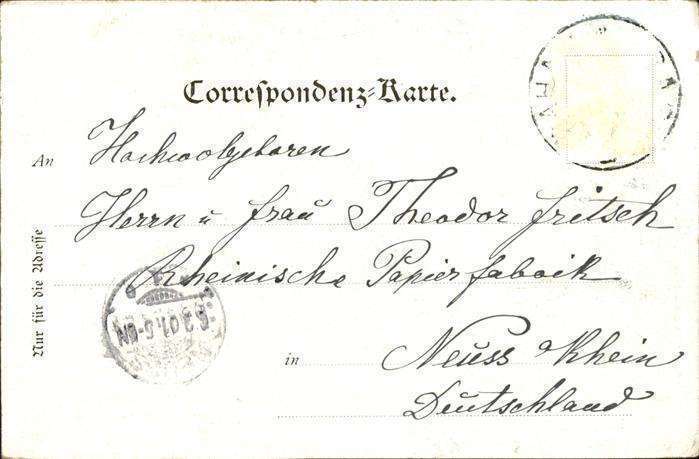 Correspondenz-Karte.
An Hochwolgeboren
Herrn u Frau Theodor Fritsch
Rheinische Papierfabrik
in Neuss a/Rhein
Deutschland
Nur für die Adresse